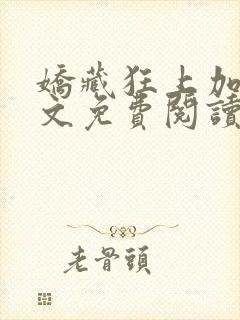 嬌藏狂上加
文免費閱讀
老骨頭